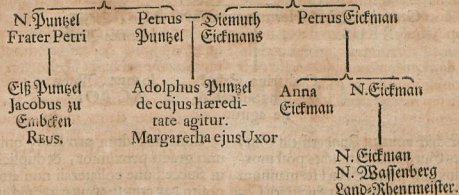 N. Puntzel
Frater Petri
Petrus
Puntzel
Diemuth
Eickmans
Petrus Eickman
Elß Puntzel
Jacobus zu
Embcken
REUS.
Adolphus Puntzel
de cujus hæredi-
tate agitur.
Margaretha ejus Uxor
Anna
Eickman
N. Eickman
N. Eickman
N. Wassenberg
Land-Rhentmeister.